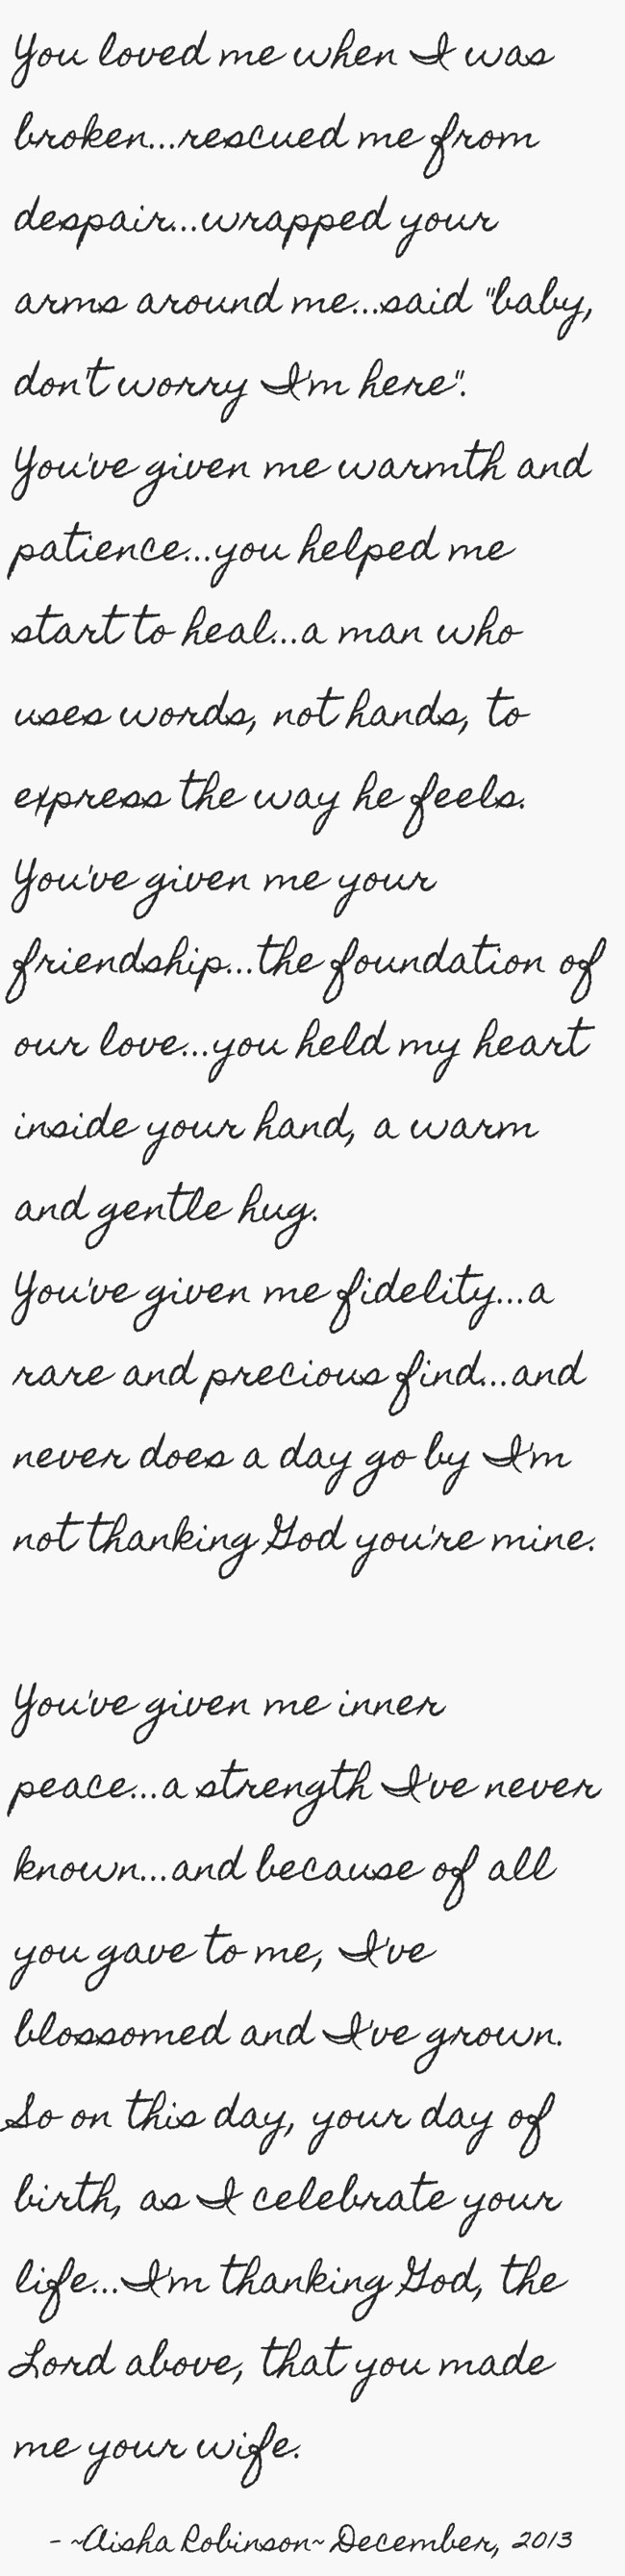 You loved me when I was
broken...rescued me from
despair...wrapped your
arms around me...said "baby,
don't worry I'm here".
You've given me warmth and
patience...you helped me
start to heal...a man who
uses words, not hands, to
express the way he feels.
You've given me your
friendship...the foundation of
our love...you held my heart
inside your hand, a warm
and gentle hug.
You've given me fidelity...a
rare and precious find...and
never does a day go by I'm
not thanking God you're mine.
You've given me inner
peace...a strength I've never
known...and because of all
you gave to me, I've
blossomed and I've grown.
So on this day, your day of
birth, as I celebrate your
life...I'm thanking God, the
Lord above, that you made
me your wife.
- ~Aisha Robinson~ December, 2013